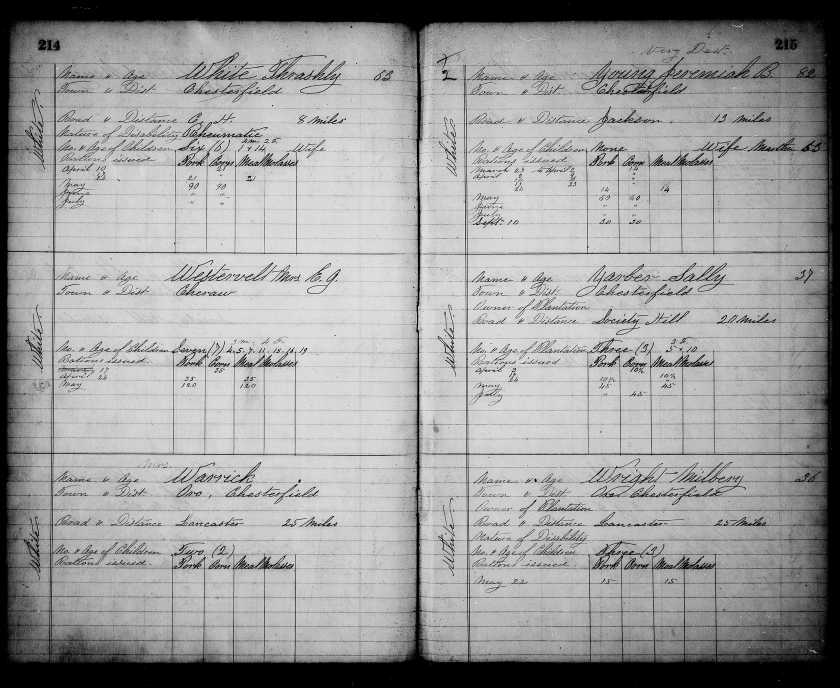 214
White
Name " Age White Thrashly 53
Town " Dist Chesterfield
Road " Distance 8 miles
Nature of Disability Rheumatic
No. " Age of Children Six (6) 1 " 14 Wife
Rations issued Pork Corn Meal Molasses
April 10 21
21 " 21
May 90 90
" "
July " "
White
Name " Age Westervelt Mrs E. G.
Town " Dist Cheraw
No. " Age of Children Seven (7) 4. 5. 7. 11. 15. 16. 19
Rations issued Pork Corn Meal Molasses
17 35
April 24 35 35
May 120 120
White
Mrs
Name " Age Warrick
Town " Dist Oro, Chesterfield
Road " Distance Lancaster 25 Miles
No. " Age of Children Two (2)
Rations issued Pork Corn Meal Molasses
215
Very Dest.
2
White
Name " Age Young Jeremiah B. 82
Town " Dist Chesterfield
Road " Distance Jackson. 13 miles
No. " Age of Children None Wife Martha 53
Rations issued Pork Corn Meal Molasses
March 23 to April 2 14
April
24 14 14
May 60 60
" "
July " "
Sept. 10 30 30
White
Name " Age Yarber Sally 37
Town " Dist Chesterfield
Owner of Plantation
Road " Distance Society Hill 20 miles
No. " Age of Plantation Three (3) 5 " 10
Rations issued Pork Corn Meal Molasses
April 10½
24 10½ 10½
May 45 45
July " 45
White
Name " Age Wright Milbery 36
Town " Dist Oro Chesterfield
Owner of Plantation
Road " Distance Lancaster 25 Miles
Nature of Disability
No. " Age of Children Three (3)
Rations issued Pork Corn Meal Molasses
May 22 15 15